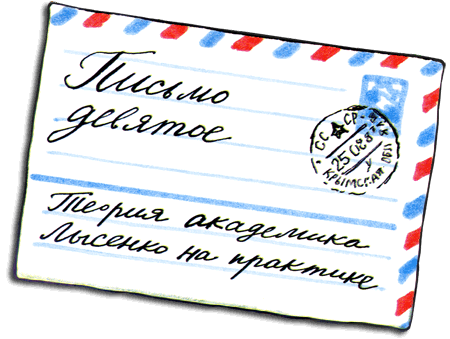 Письмо
девятое
СССР
КРЫМСКАЯ ОБЛ
Теория академика
Лысенко на практике